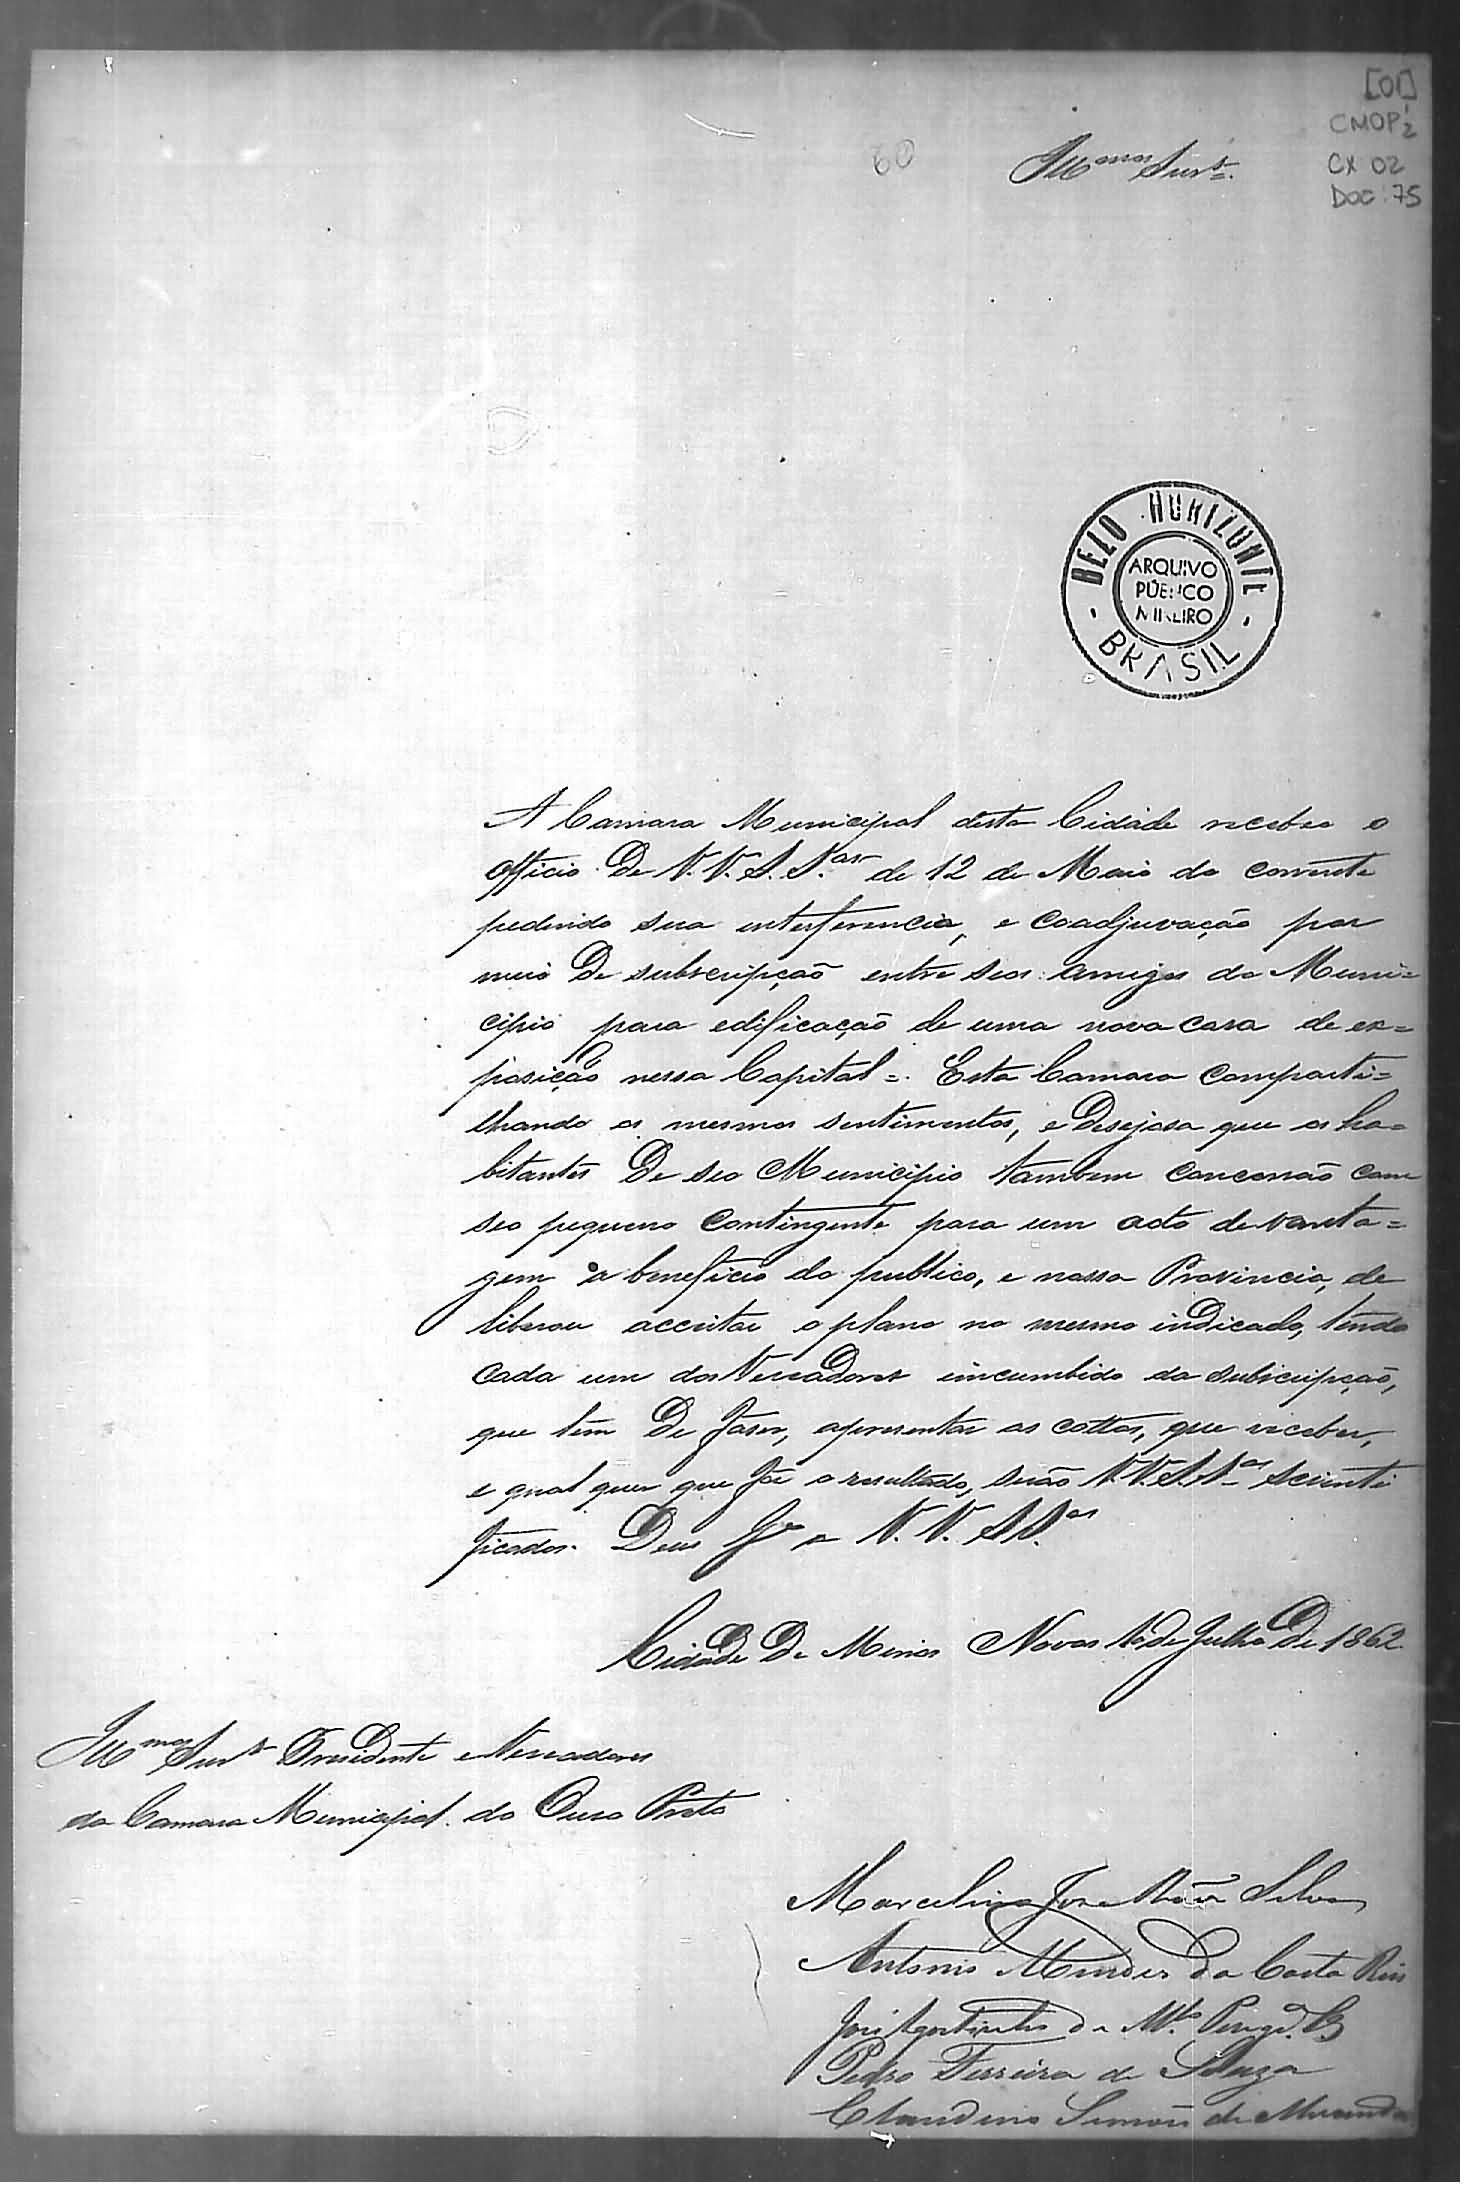 [01]
CMOP 2
CX 02
DOC: 75
60
Ill.mos Snr.s
BELO HORIZONTE
ARQUIVO
PÚBLICO
MINEIRO
BRASIL
A Camara Municipal desta Cidade recebeo o
officio de V.V. S.S.as de 12 de Maio do corrente
pedindo sua interferencia, e coadjuvação por
meio de subscripção entre seos amigos do Muni=
cipio para edificação de uma nova casa de ex=
posição nessa Capital =. Esta Camara comparti=
lhando os mesmos sentimentos, e desejosa que os ha=
bitantes de seo Municipio tambem concorrão com
seo pequeno contingente para um acto de vanta=
gem a beneficio do publico, e nossa Provincia, de
liberou acceitar o plano no mesmo indicado, tendo
cada um dos Vereadores incumbido da subscripção,
que tem de faser, apresentar as cottas, que receber,
e qual quer que for o resultado, serão V.V. S.S.as scienti
ficados. Deus G.e a V.V. S.S.as
Cidade de Minas Novas de Julho de 1862
Ill.mos Snr.s Presidente e Vereadores
da Camara Municipal do Ouro Preto
Marcelino Jose da Silva
Antonio Mendes da Costa Reis
José Agostinho
Pedro Ferreira de Souza
Claudino Simões de Miranda